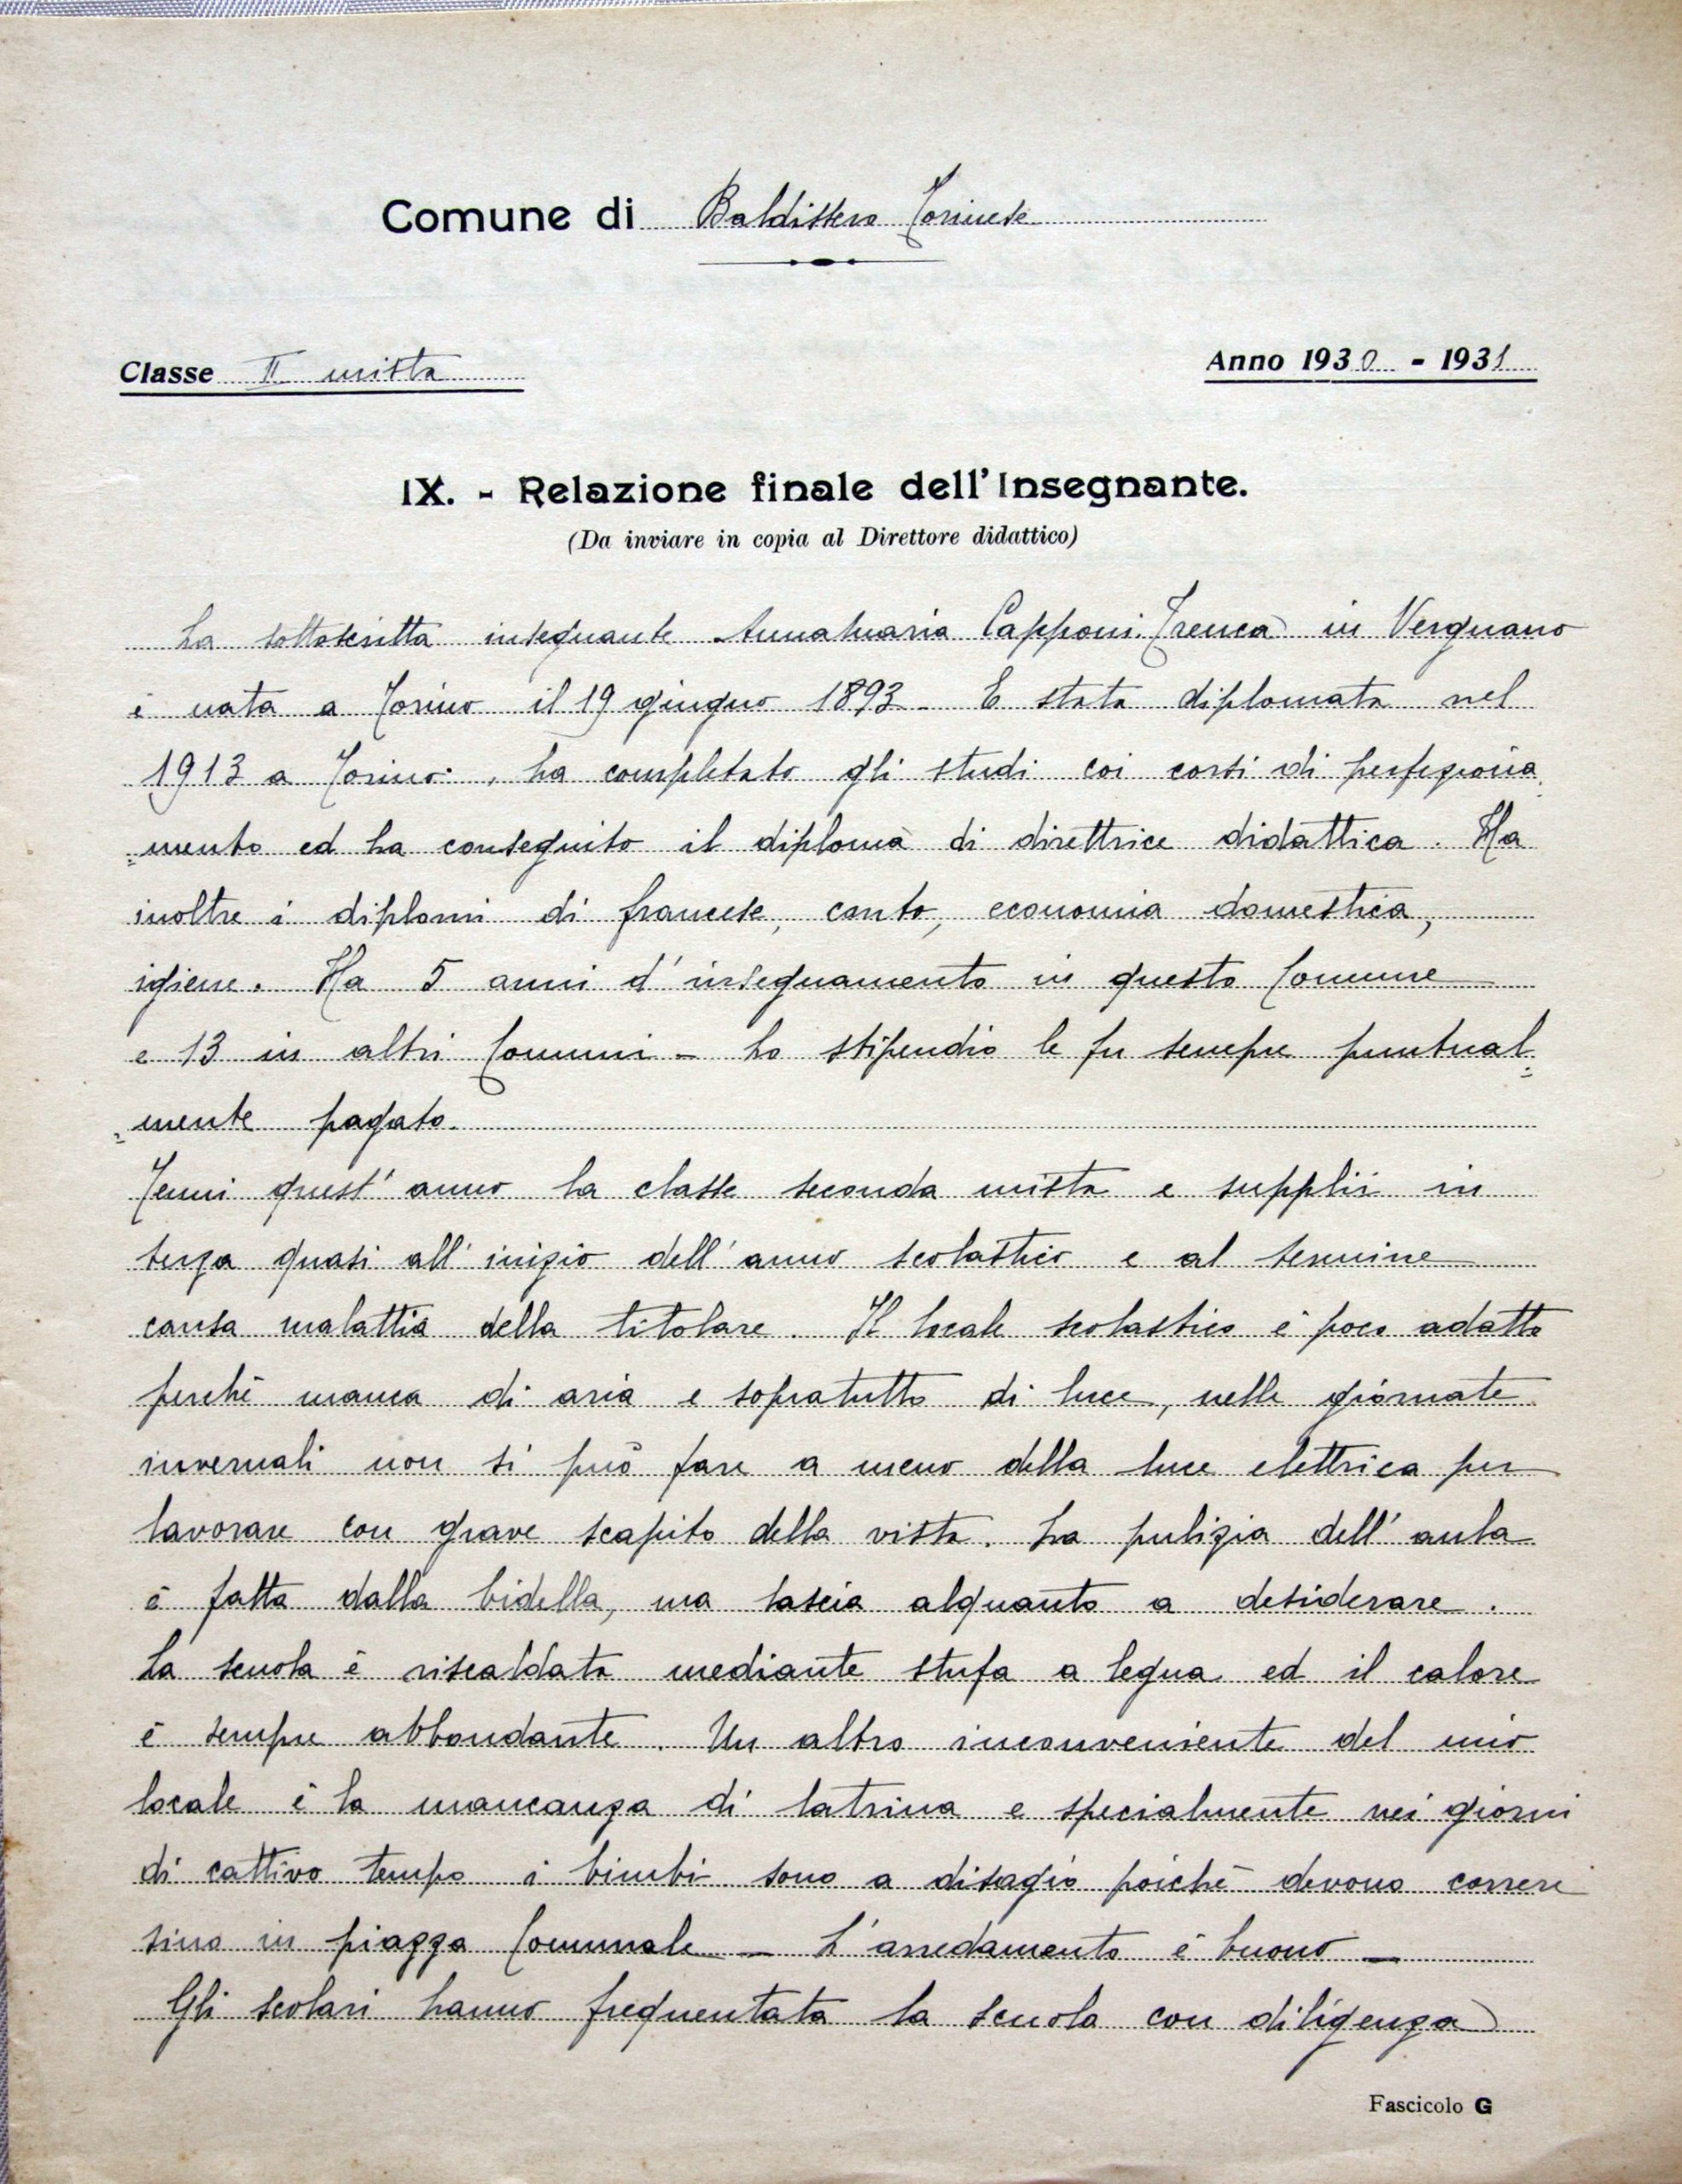 Comune di Baldissero Torinese
Classe II mista
Anno 1930 - 1931
IX. - Relazione finale dell'Insegnante.
(Da inviare in copia al Direttore didattico)
La sottoscritta insegnante Annamaria Capponi in Vergnano
è nata a Torino il 19 giugno 1893 - E stata diplomata nel
1913 a Torino, ha completato gli studi coi corsi di perfeziona
=mento ed ha conseguito il diploma di direttrice didattica. Ha
inoltre i diplomi di francese, canto, economia domestica,
igiene. Ha 5 anni d'insegnamento in questo Comune
e 13 in altri Comuni - Lo stipendio le fu sempre puntual=
=mente pagato.
Tenni quest'anno la classe seconda mista e supplii in
terza quasi all'inizio dell'anno scolastico e al termine
causa malattia della titolare. Il locale scolastico è poco adatto
perchè manca di aria e sopratutto di luce, nelle giornate
invernali non si può fare a meno della luce elettrica per
lavorare con grave scapito della vista. La pulizia dell'aula
è fatta dalla bidella, ma lascia alquanto a desiderare.
La scuola è riscaldata mediante stufa a legna ed il calore
è sempre abbondante. Un altro inconveniente del mio
locale è la mancanza di latrina e specialmente nei giorni
di cattivo tempo i bimbi sono a disagio poichè devono correre
sino in piazza Comunale - L'arredamento è buono -
Gli scolari hanno frequentata la scuola con diligenza
Fascicolo G